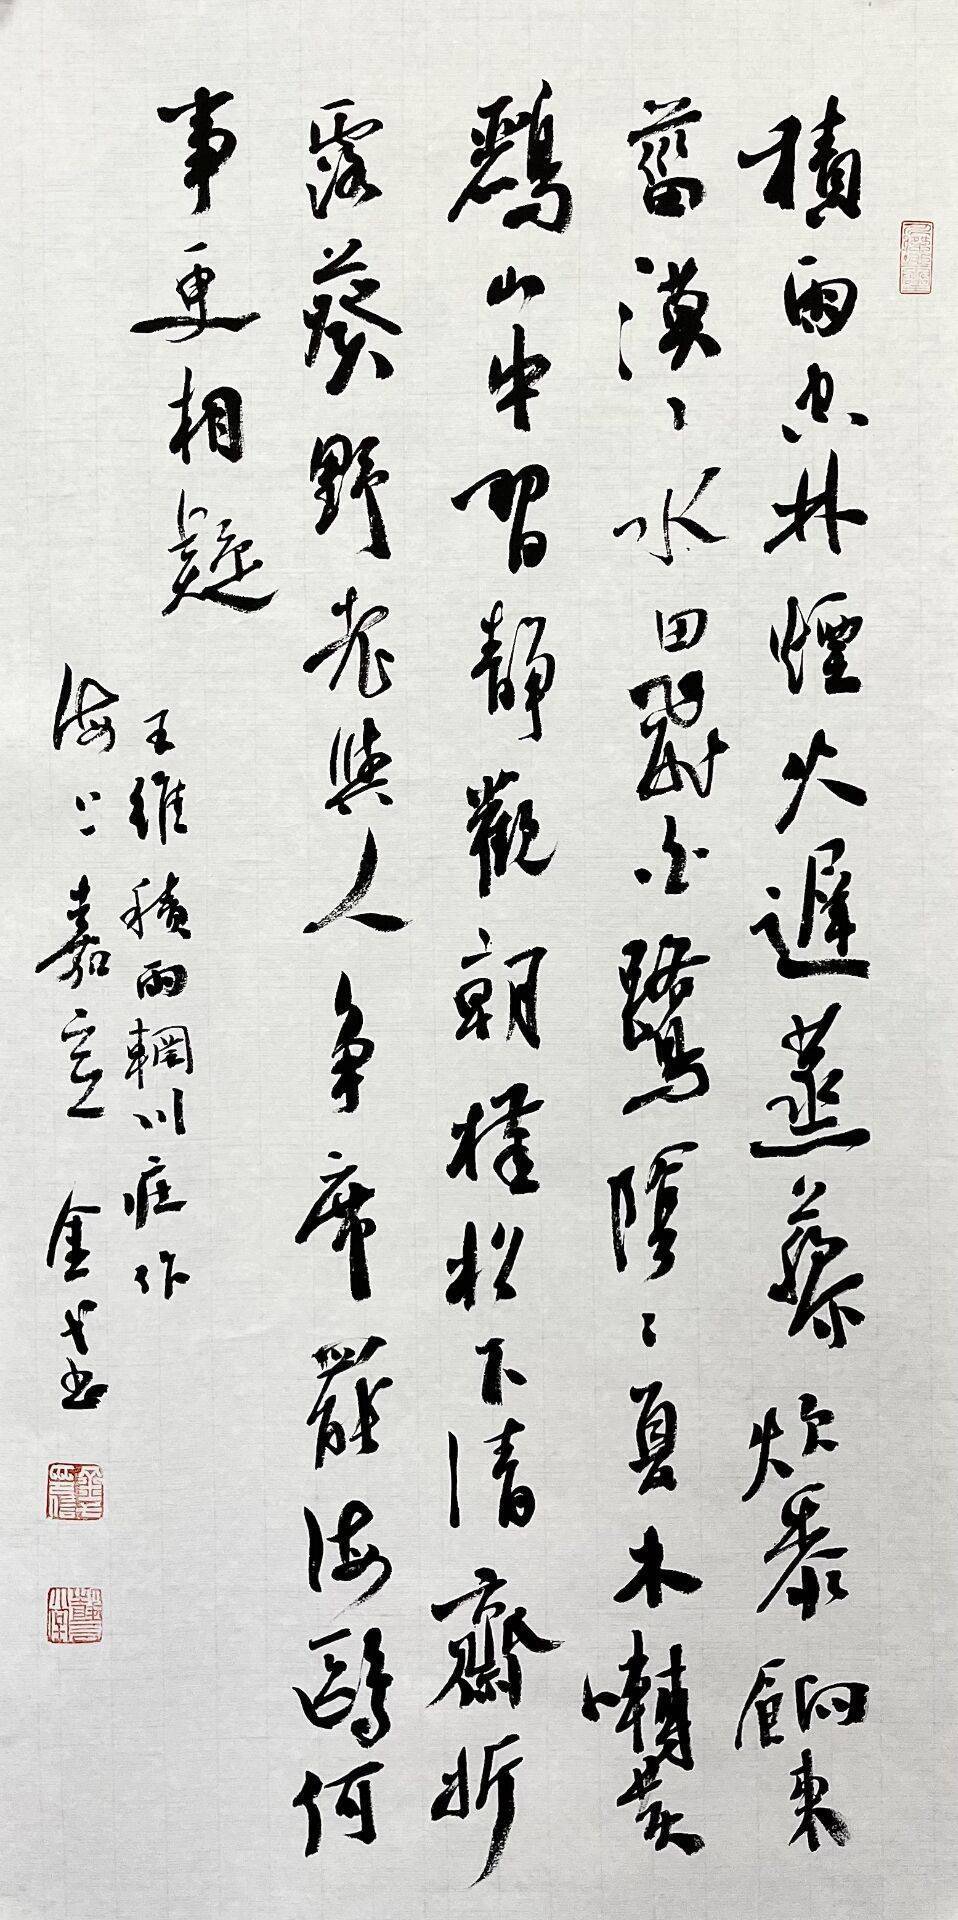 積雨空林煙火遲蒸藜炊黍餉東
菑漠〻水田飛白鷺陰〻夏木囀黃
鸝山中習靜觀朝槿松下清齋折
露葵野老與人争席罷海鷗何
事更相疑
王維積雨輞川庄作
海上嘉定金戈书